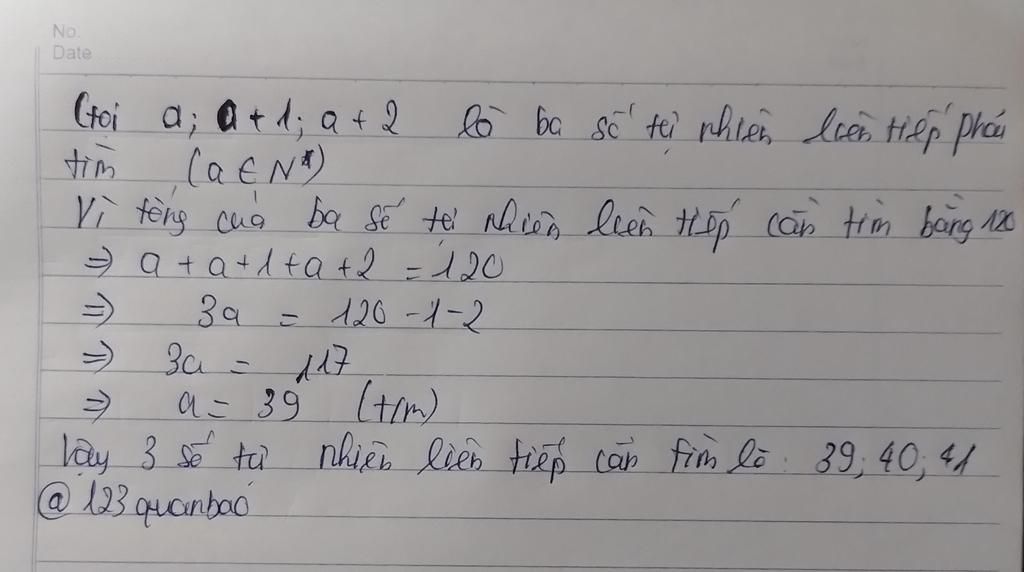 No.
Date
Gọi a; a+1; a+2 là ba số tự nhiên liên tiếp phải
tìm (a ∈ N*)
Vì tổng của ba số tự nhiên liên tiếp cần tìm bằng 120
=> a + a + 1 + a + 2 = 120
=> 3a = 120 - 1 - 2
=> 3a = 117
=> a = 39 (t/m)
Vậy 3 số tự nhiên liên tiếp cần tìm là: 39; 40; 41
@123quanbao